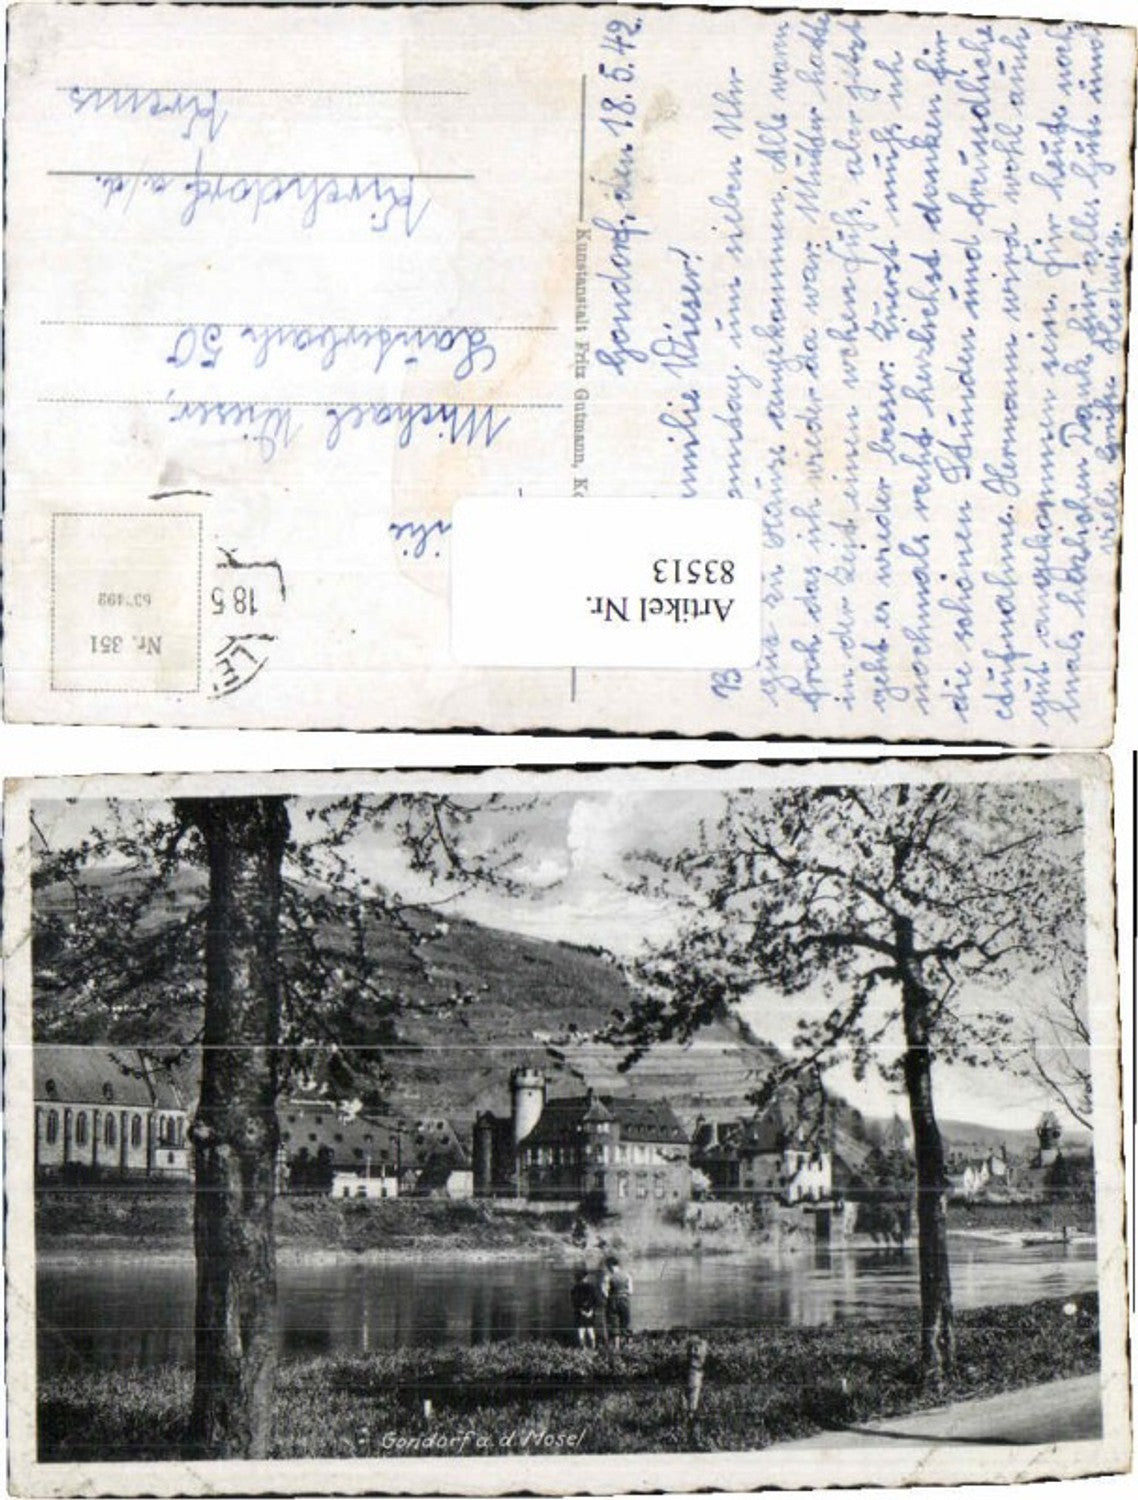 Gondorf, den 18.5.42.
milie Wieser!
B onntag um sieben Uhr
gut zu Hause angekommen. Alle waren
froh das ich wieder da war. Mutter hatte
in der Zeit einen wehen Fuß, aber jetzt
geht es wieder besser. Zuerst muß ich
nochmals recht herzlichst danken für
die schönen Stunden und freundliche
Aufnahme. Hermann wird wohl auch
gut angekommen sein. Für heute noch
mals herzlichen Dank für alles Gute und
viele Grüße Hedwig.
Kunstanstalt Fritz Gutmann, Ko
Artikel Nr.
83513
Nr. 351
18 5
ilie
Michael Wieser,
50
Kirchdorf a/d.
Krems
Gondorf a. d. Mosel